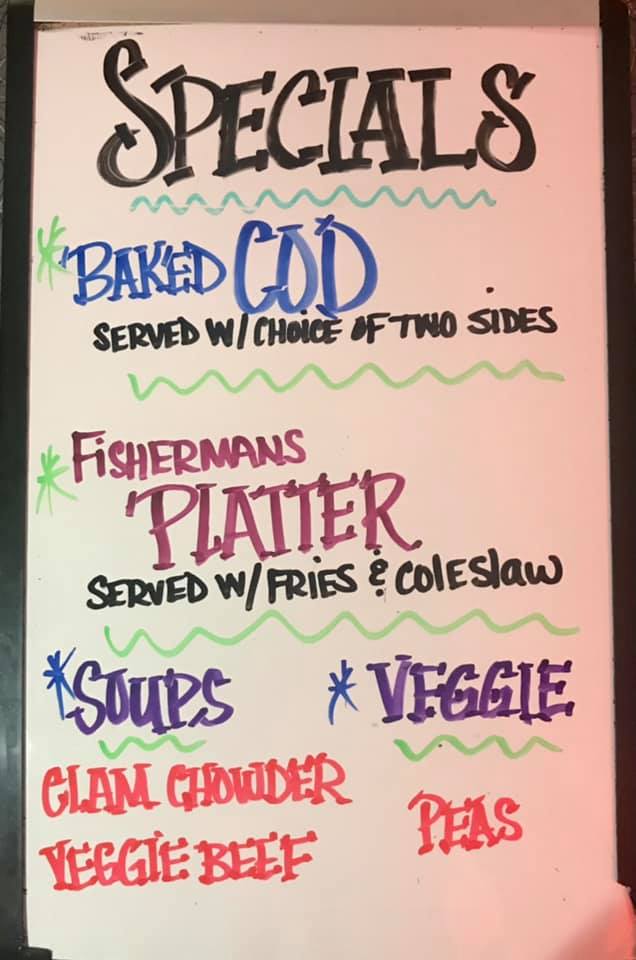 SPECIALS
* BAKED COD
SERVED W/ CHOICE OF TWO SIDES
* FISHERMANS
PLATTER
SERVED W/ FRIES & COLESLAW
* SOUPS
CLAM CHOWDER
VEGGIE BEEF
* VEGGIE
PEAS